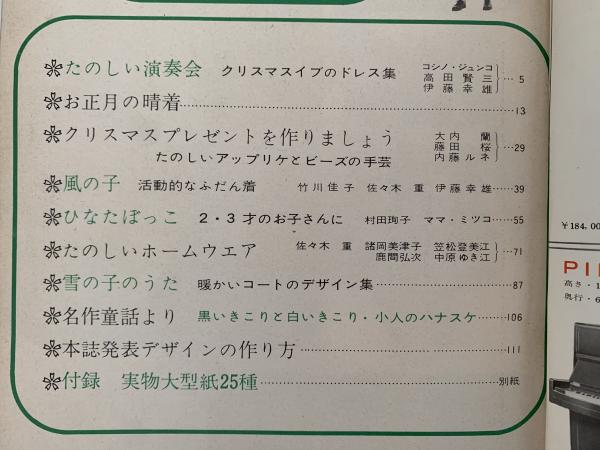 ❇たのしい演奏会 クリスマスイブのドレス集 コシノ・ジュンコ 高田賢三 伊藤幸雄 … 5
❇お正月の晴着……13
❇クリスマスプレゼントを作りましょう 大内蘭 藤田桜 内藤ルネ …29
たのしいアップリケとビーズの手芸
❇風の子 活動的なふだん着 竹川佳子 佐々木重 伊藤幸雄……39
❇ひなたぼっこ 2・3才のお子さんに 村田珣子 ママ・ミツコ……55
❇たのしいホームウエア 佐々木重 諸岡美津子 笠松登美江 鹿間弘次 中原ゆき江 …71
❇雪の子のうた 暖かいコートのデザイン集……87
❇名作童話より 黒いきこりと白いきこり・小人のハナスケ……106
❇本誌発表デザインの作り方……111
❇付録 実物大型紙25種……別紙
¥184,00
PI
高さ・1
奥行・6